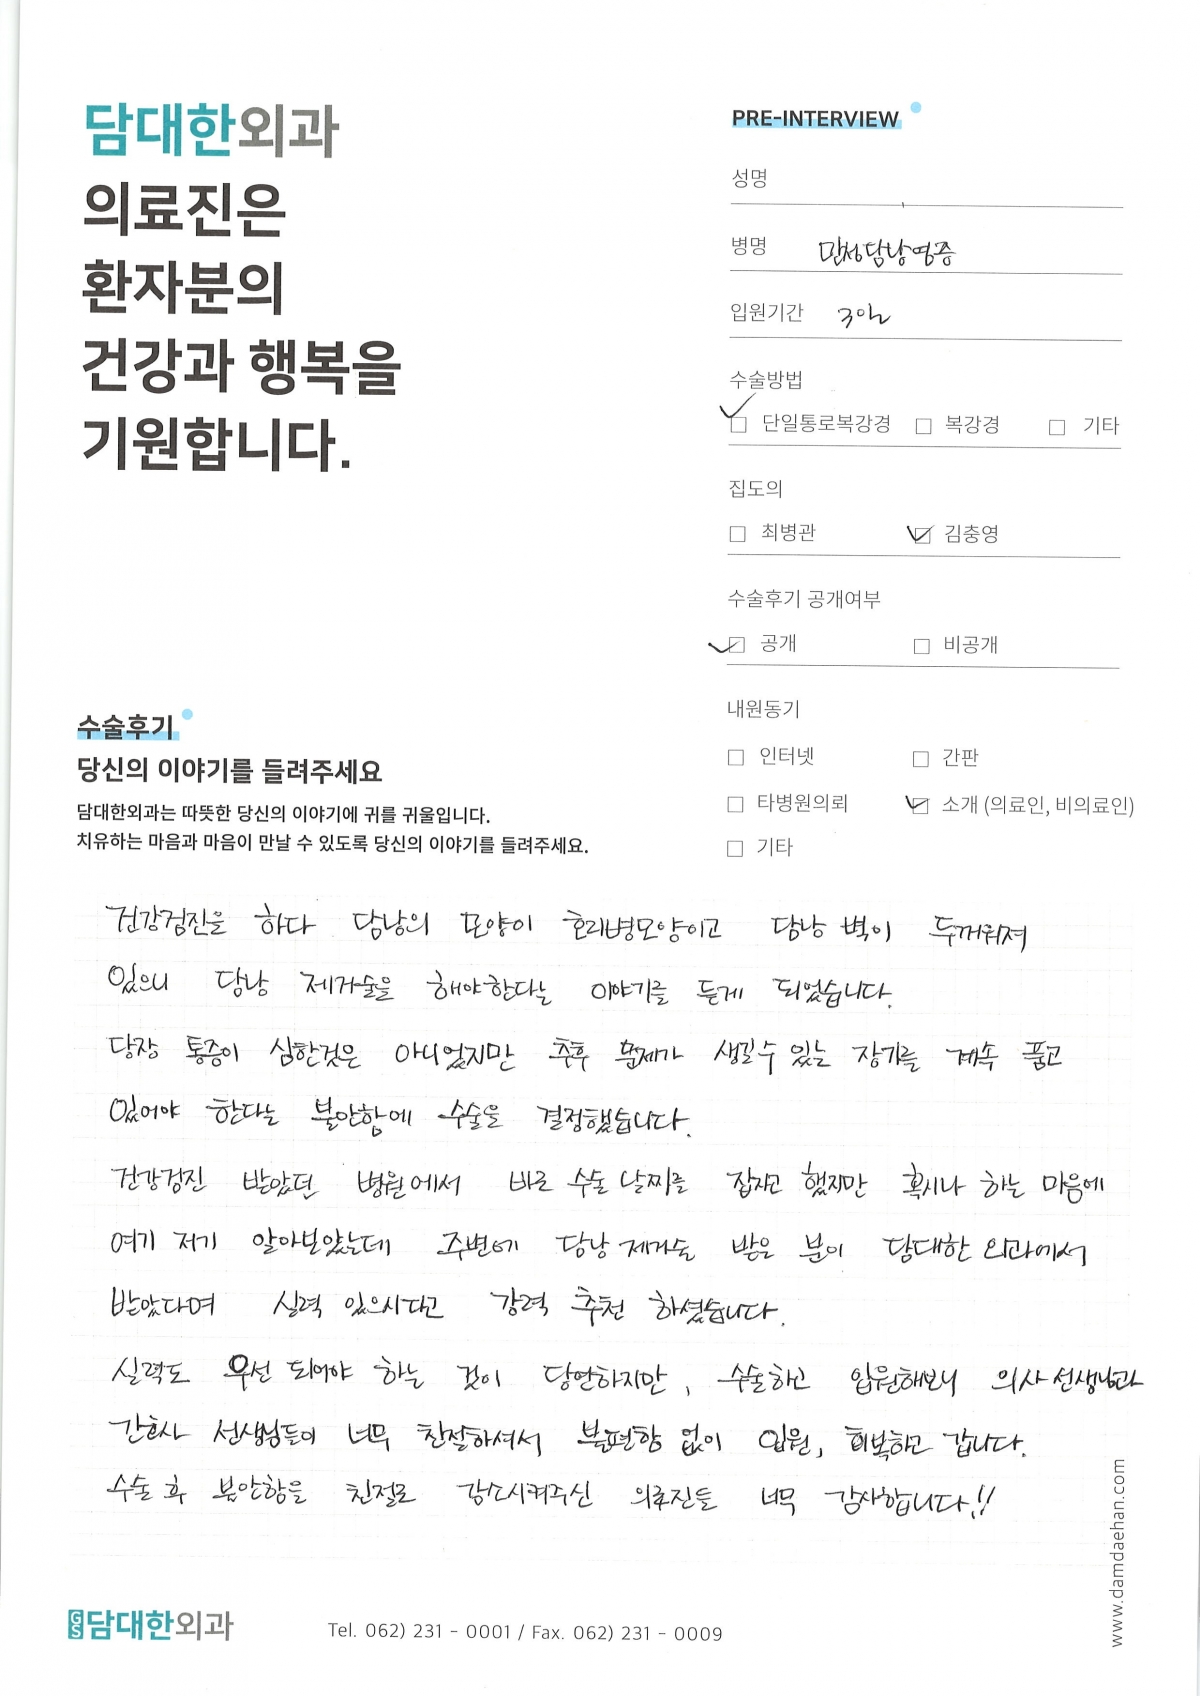 담대한외과
의료진은
환자분의
건강과 행복을
기원합니다.
PRE-INTERVIEW
성명
병명 만성담낭염증
입원기간 3일
수술방법
단일통로복강경 복강경 기타
집도의
최병관 김충영
수술후기 공개여부
공개 비공개
내원동기
인터넷 간판
타병원의뢰 소개 (의료인, 비의료인)
기타
수술후기
당신의 이야기를 들려주세요
담대한외과는 따뜻한 당신의 이야기에 귀를 귀울입니다.
치유하는 마음과 마음이 만날 수 있도록 당신의 이야기를 들려주세요.
건강검진을 하다 담낭의 모양이 호리병모양이고 담낭 벽이 두꺼워져
있으니 담낭 제거술을 해야한다는 이야기를 듣게 되었습니다.
당장 통증이 심한것은 아니었지만 추후 문제가 생길수 있는 장기를 계속 품고
있어야 한다는 불안함에 수술을 결정했습니다.
건강검진 받았던 병원에서 바로 수술 날짜를 잡자고 했지만 혹시나 하는 마음에
여기 저기 알아보았는데 주변에 담낭 제거술 받은 분이 담대한 외과에서
받았다며 실력 있으시다고 강력 추천 하셨습니다.
실력도 우선 되어야 하는 것이 당연하지만, 수술하고 입원해보니 의사 선생님과
간호사 선생님들이 너무 친절하셔서 불편함 없이 입원, 회복하고 갑니다.
수술 후 불안함을 친절로 감소시켜주신 의료진들 너무 감사합니다!!
GS 담대한외과
Tel. 062) 231 - 0001 / Fax. 062) 231 - 0009
www.damdaehan.com